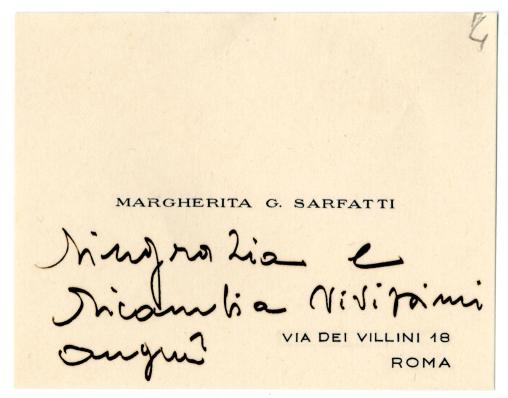 4
MARGHERITA G. SARFATTI
ringrazia e
ricambia vivissimi
auguri
VIA DEI VILLINI 18
ROMA